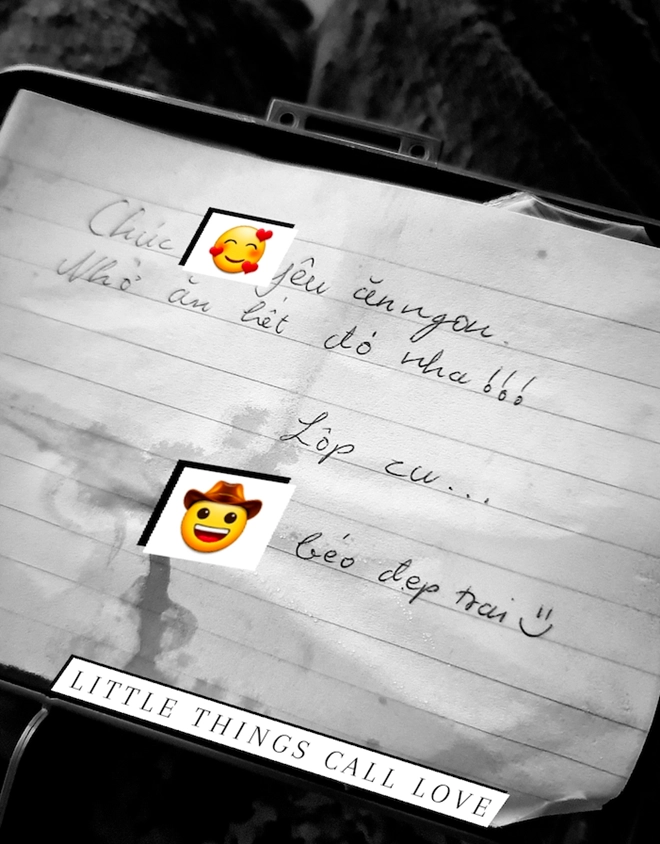 Chúc 🥰 yêu ăn ngon.
Nhớ ăn hết đó nha!!!
Lốp cu...
🤠 béo đẹp trai
LITTLE THINGS CALL LOVE